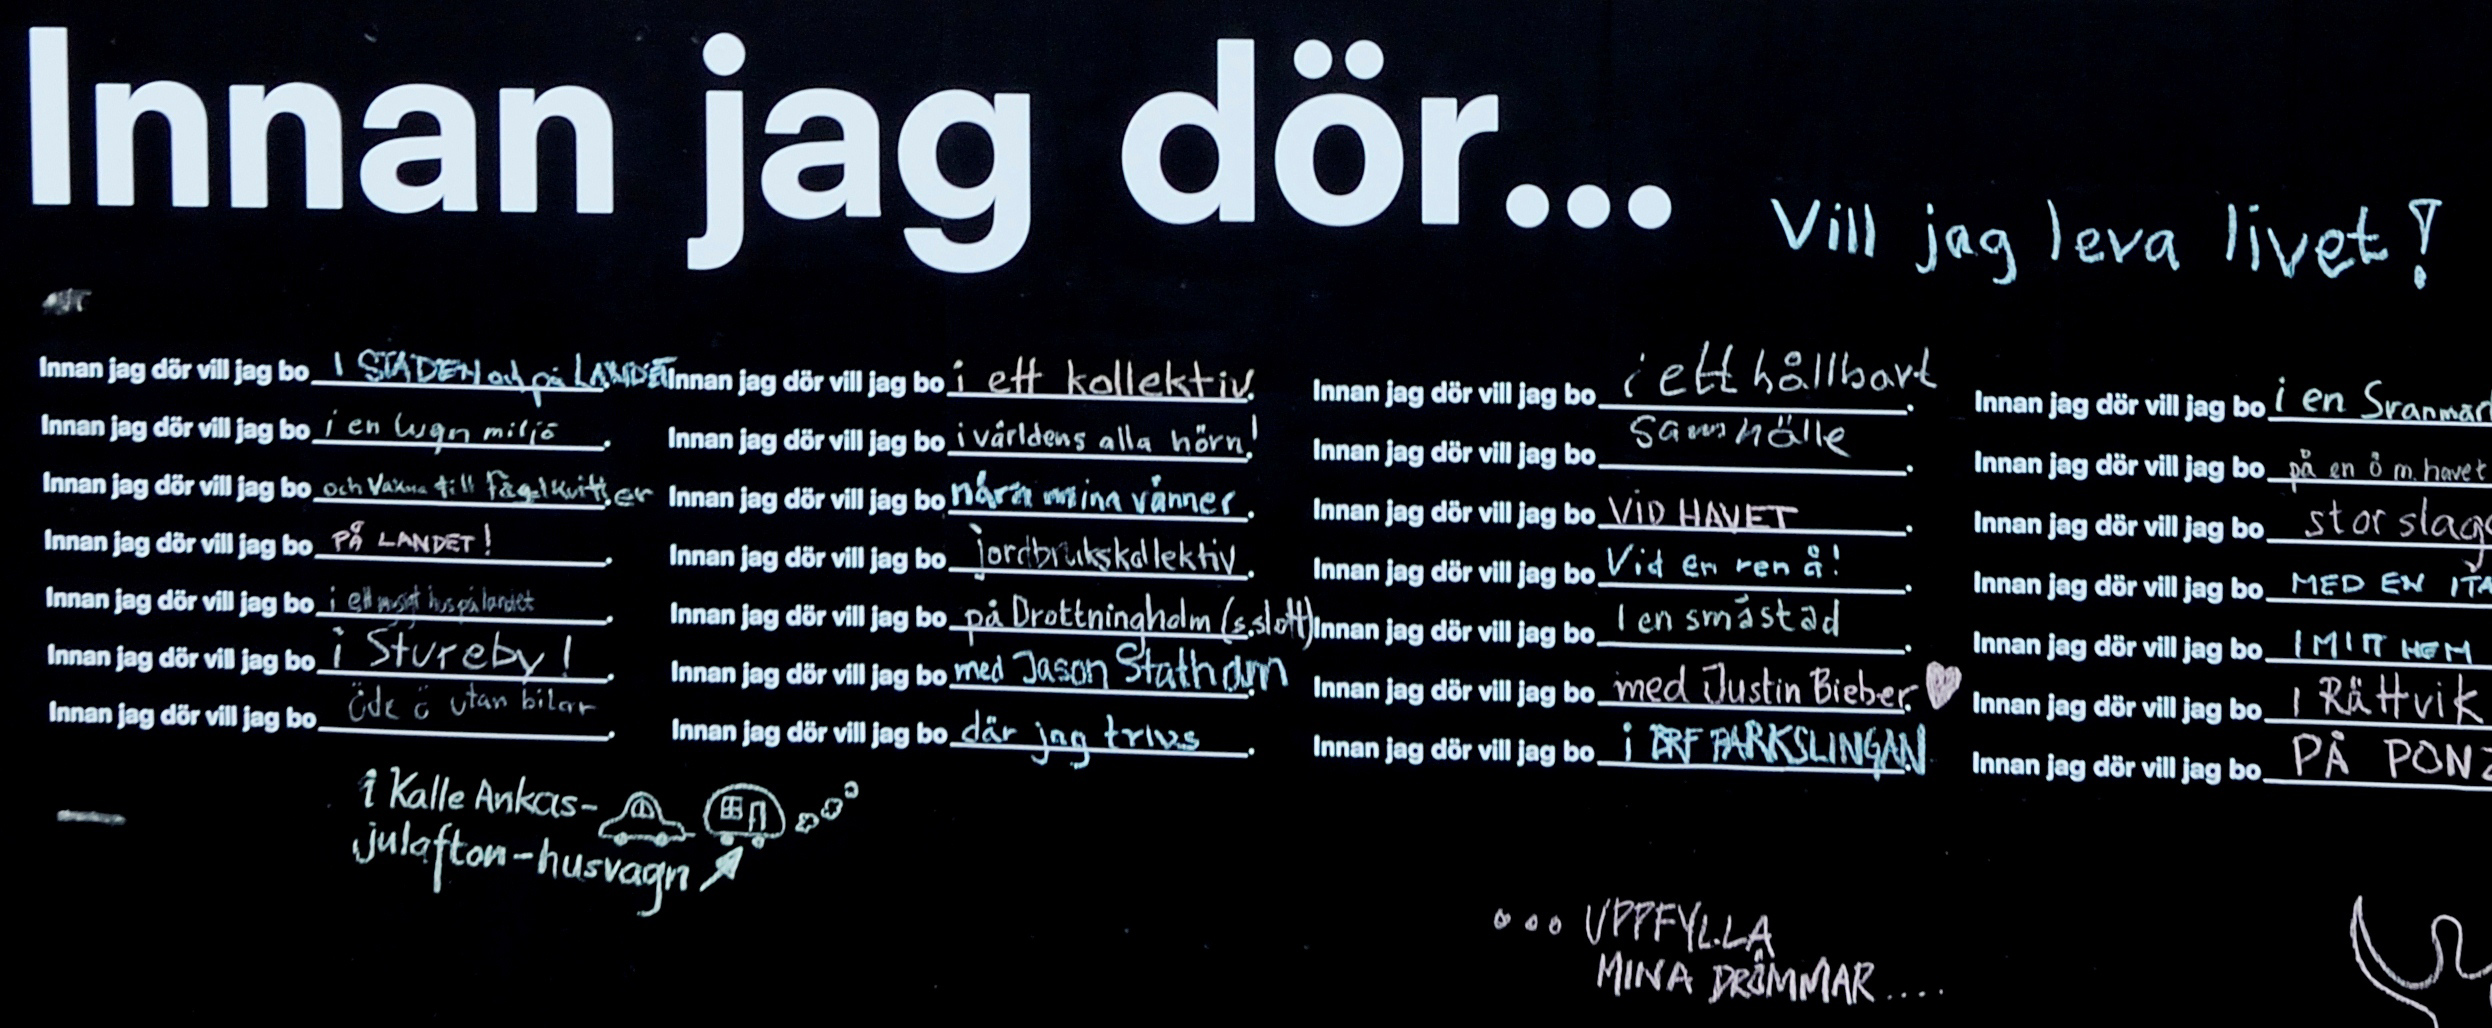 Innan jag dör...
Vill jag leva livet!
Innan jag dör vill jag bo I STADEN och på LANDET
Innan jag dör vill jag bo i en lugn miljö.
Innan jag dör vill jag bo och vakna till fågelkvitter
Innan jag dör vill jag bo PÅ LANDET!.
Innan jag dör vill jag bo i ett mysigt hus på landet.
Innan jag dör vill jag bo i Stureby!.
Innan jag dör vill jag bo öde ö utan bilar.
i Kalle Ankas-
julafton-husvagn
Innan jag dör vill jag bo i ett kollektiv.
Innan jag dör vill jag bo i världens alla hörn!.
Innan jag dör vill jag bo nära mina vänner.
Innan jag dör vill jag bo jordbrukskollektiv.
Innan jag dör vill jag bo på Drottningholm (s.slott)
Innan jag dör vill jag bo med Jason Statham.
Innan jag dör vill jag bo där jag trivs.
Innan jag dör vill jag bo i ett hållbart.
Innan jag dör vill jag bo samhälle.
Innan jag dör vill jag bo VID HAVET.
Innan jag dör vill jag bo Vid en ren å!.
Innan jag dör vill jag bo I en småstad.
Innan jag dör vill jag bo med Justin Bieber.
Innan jag dör vill jag bo i BRF PARKSLINGAN.
Innan jag dör vill jag bo i en
Innan jag dör vill jag bo på en ö m. havet
Innan jag dör vill jag bo stor slag
Innan jag dör vill jag bo MED EN ITA
Innan jag dör vill jag bo I MITT HEM
Innan jag dör vill jag bo I Rättvik
Innan jag dör vill jag bo PÅ PONZ
... UPPFYLLA
MINA DRÖMMAR....